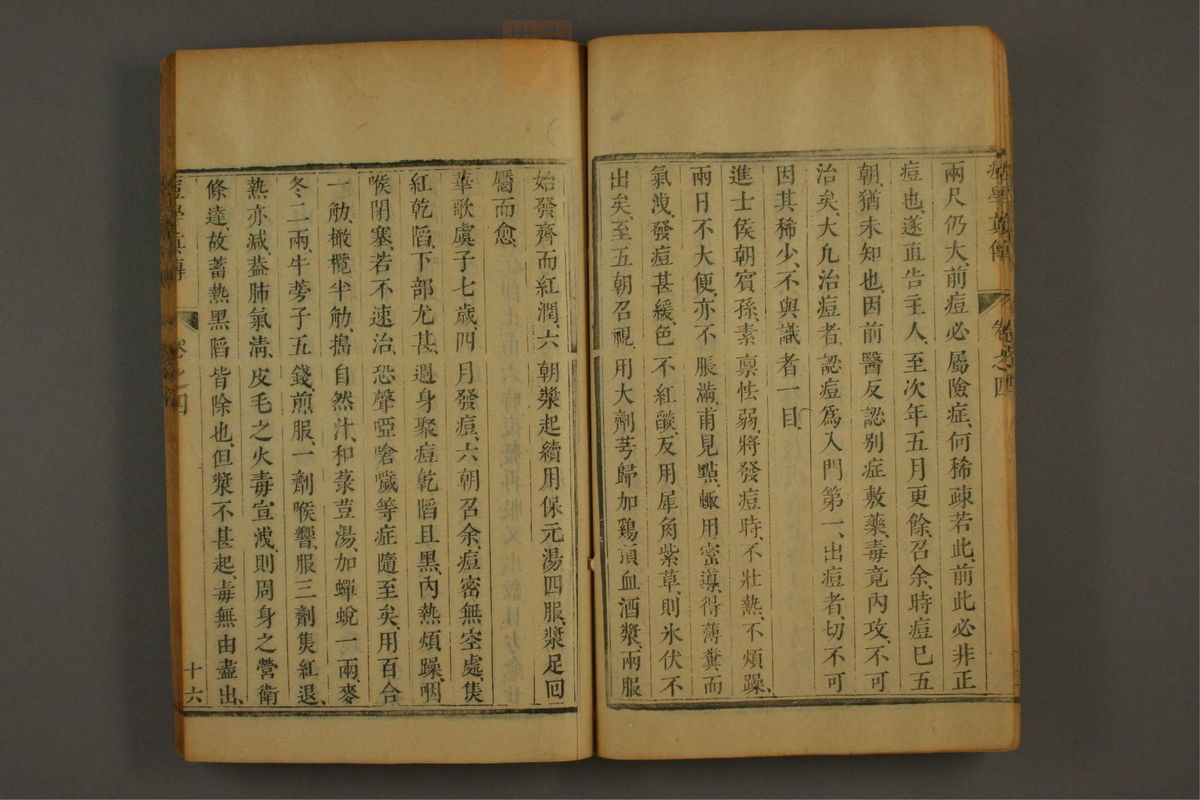 痘學眞傳 卷之四
兩尺仍大、前痘必屬險症、何稀疎若此、前此必非正
痘也、遂直告主人、至次年五月更餘、召余、時痘已五
朝、猶未知也、因前醫反認別症敷藥、毒竟內攻、不可
治矣、大凡治痘者、認痘爲入門第一、出痘者、切不可
因其稀少、不與識者一目、
進士侯朝賓孫、素稟怯弱、將發痘時、不壯熱、不煩躁、
兩日不大便、亦不脹滿、甫見點、輙用蜜導、得薄糞、而
氣洩、發痘甚緩、色不紅燄、反用犀角紫草、則氷伏不
出矣、至五朝召視、用大劑芎歸加鷄頂血酒漿、兩服
始發齊而紅潤、六朝漿起、續用保元湯四服、漿足回
靨而愈、
華歌虞子七歲、四月發痘、六朝召余、痘密無空處、焦
紅乾䧟、下部尤甚、遇身聚痘乾䧟且黑、內熱煩躁、咽
喉閉塞、若不速治、恐聲啞嗆噦等症隨至矣、用百合
一觔、橄欖半觔、搗自然汁、和菉荳湯、加蟬蛻一兩、麥
冬二兩、牛蒡子五錢、煎服、一劑喉響、服三劑焦紅退、
熱亦减、葢肺氣淸、皮毛之火毒宣洩、則周身之營衛
條達、故蓄熱黑䧟皆除也、但漿不甚起、毒無由盡出、
痘學眞傳 卷之四 十六